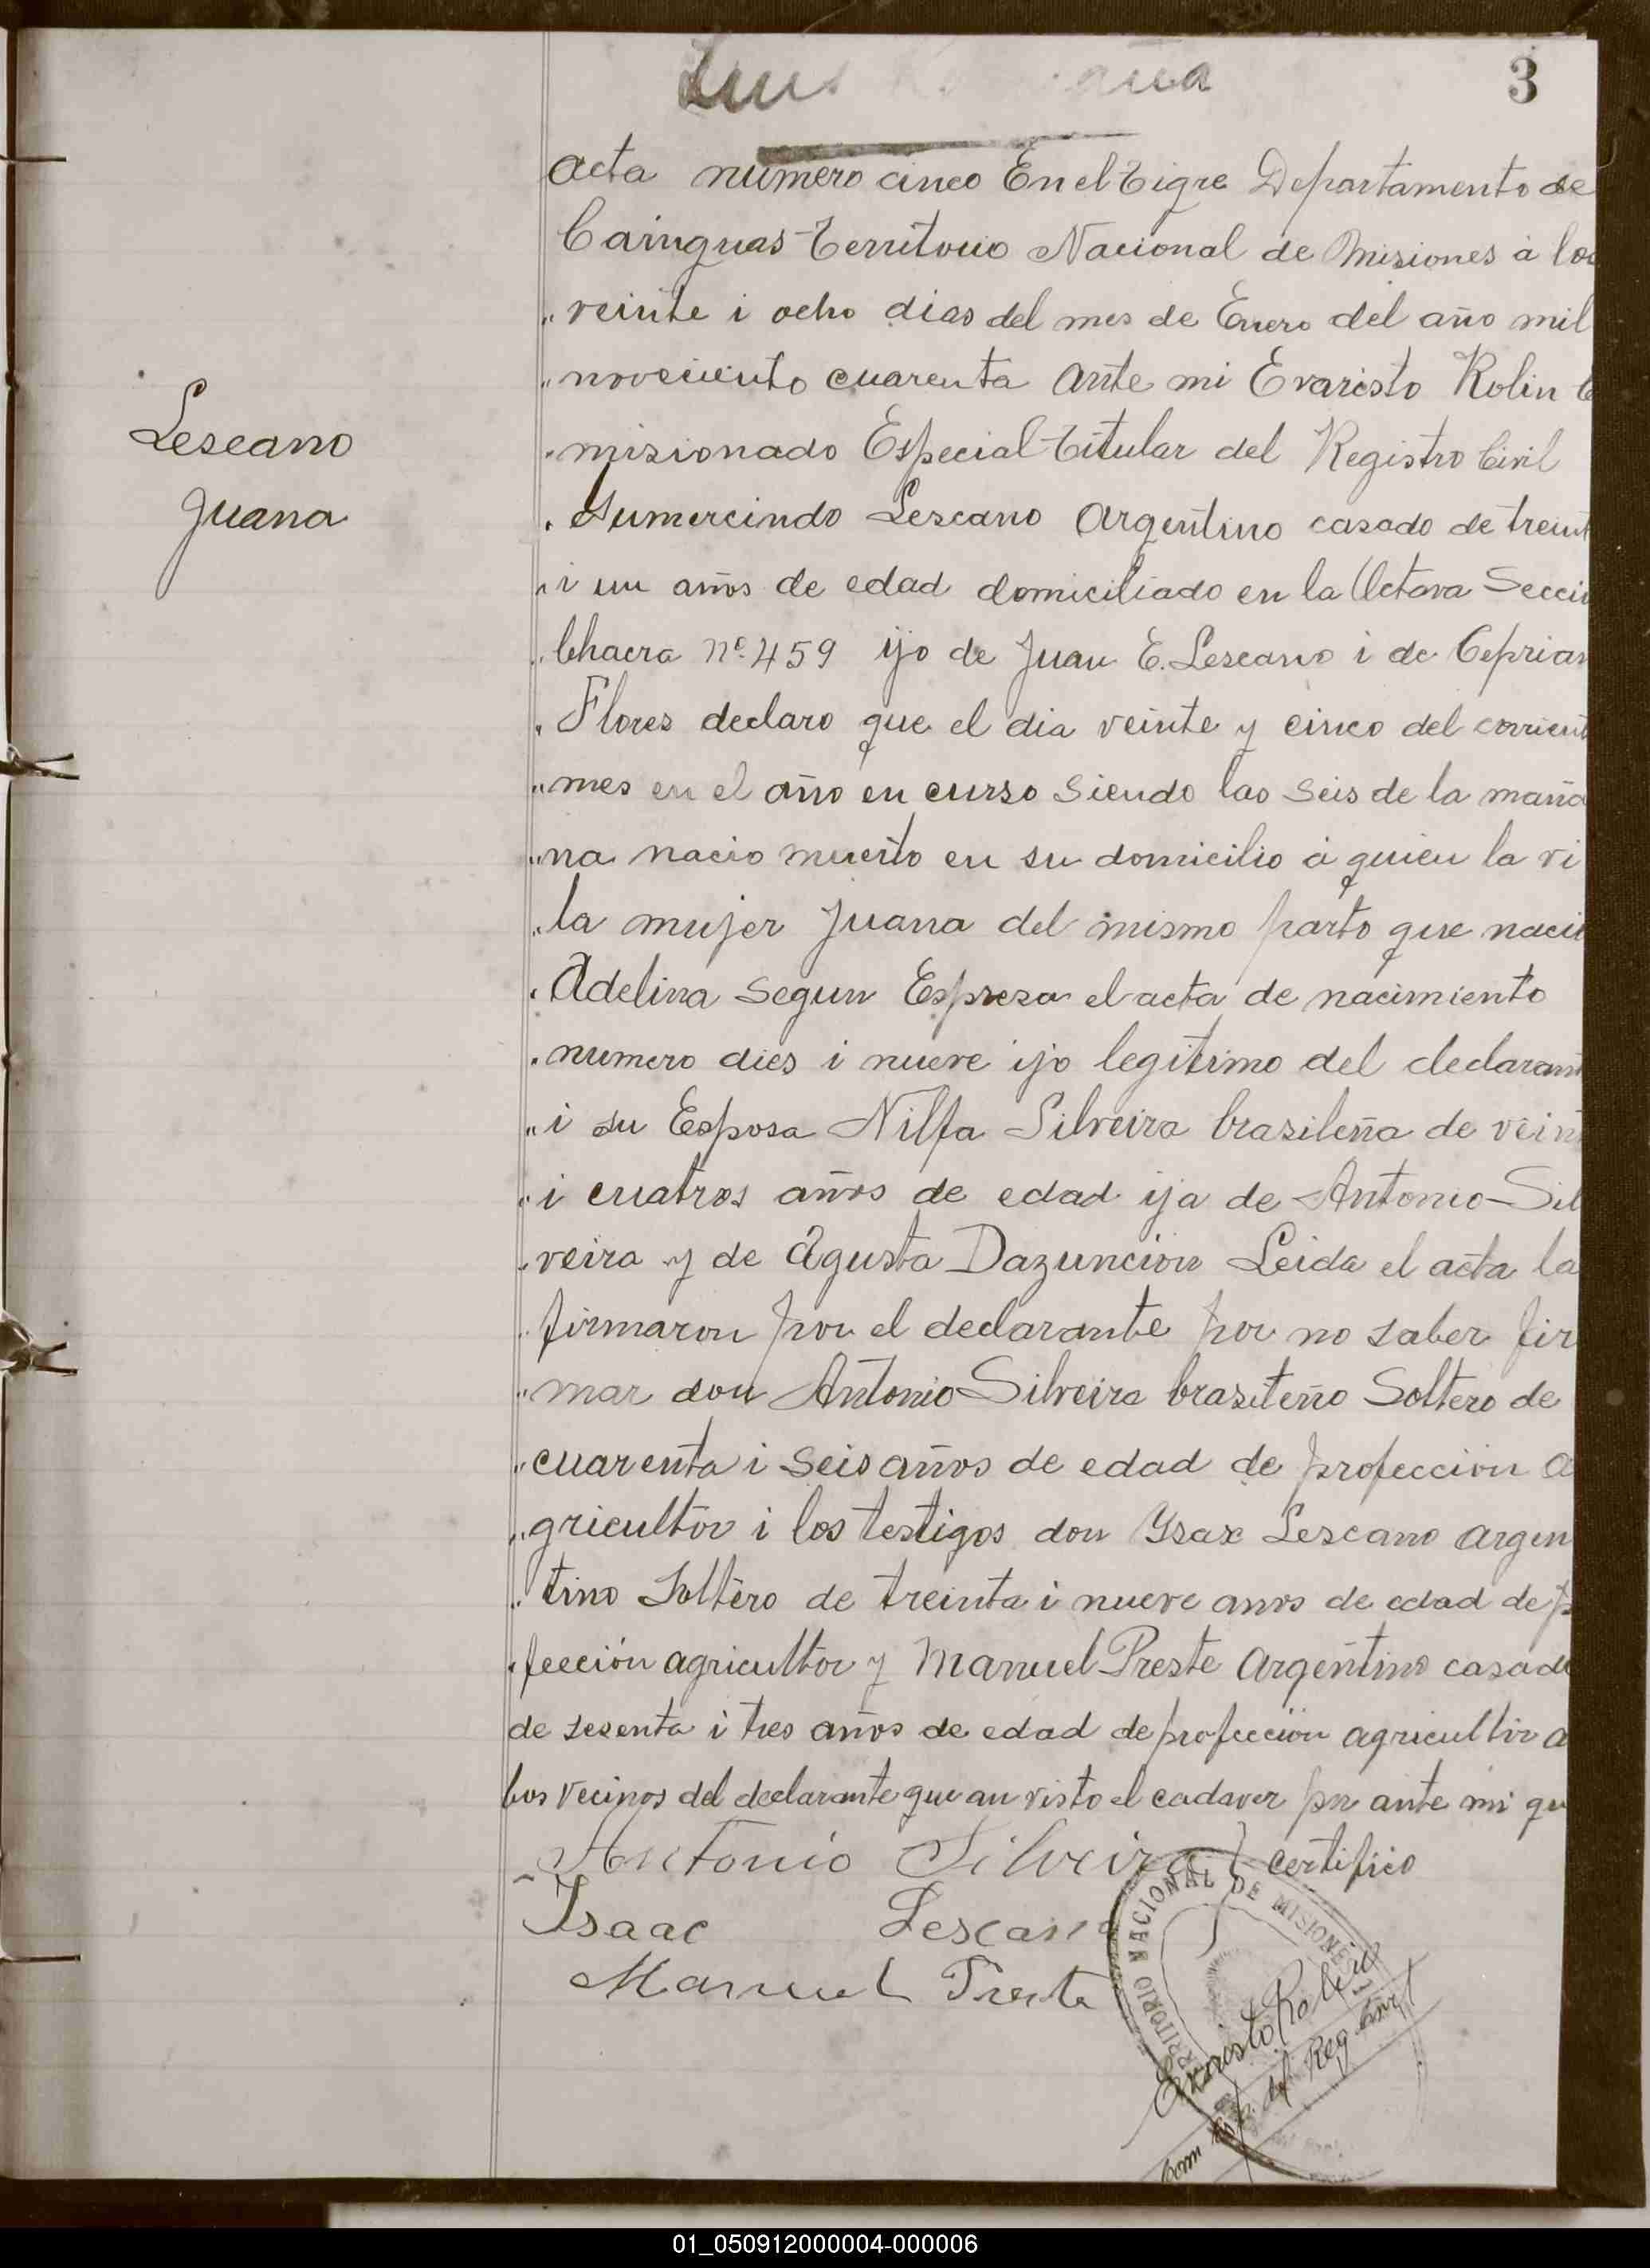 Luis
3
Acta numero cinco En el Tigre Departamento de
Cainguas Territorio Nacional de Misiones à los
veinte i ocho dias del mes de Enero del año mil
noveciento cuarenta Ante mi Evaristo Rolin Co
misionado Especial Titular del Registro Civil
Lescano
Juana
Gumercindo Lescano Argentino casado de treint
i un años de edad domiciliado en la Octava Secci
Chacra Nº 459 ijo de Juan E. Lescano i de Ceprian
Flores declaro que el dia veinte y cinco del corrient
mes en el año en curso siendo las seis de la maña
na nacio muerto en su domicilio à quien la vi
la mujer Juana del mismo parto que naci
Adelina segun Espresa el acta de nacimiento
numero dies i nueve ijo legitimo del declarant
i su Esposa Nilfa Silveira brasileña de vein
i cuatros años de edad ija de Antonio Sil
veira y de Agusta Dazuncion Leida el acta la
firmaron por el declarante por no saber fir
mar don Antonio Silveira brasileño Soltero de
cuarenta i seis años de edad de profeccion a
gricultor i los testigos don Ysax Lescano argen
tino Soltero de treinta i nueve anos de edad de p
fección agricultor y Manuel Preste Argentino casado
de sesenta i tres años de edad de profeccion agricultor a
bos vecinos del declarante que an visto el cadaver por ante mi qu
certifico
Antonio Silveira
Isaac Lescano
Manuel Preste
RRITORIO NACIONAL DE MISIONES
Evaristo Rolin
Com Esp. del Reg Civil
01_050912000004-000006